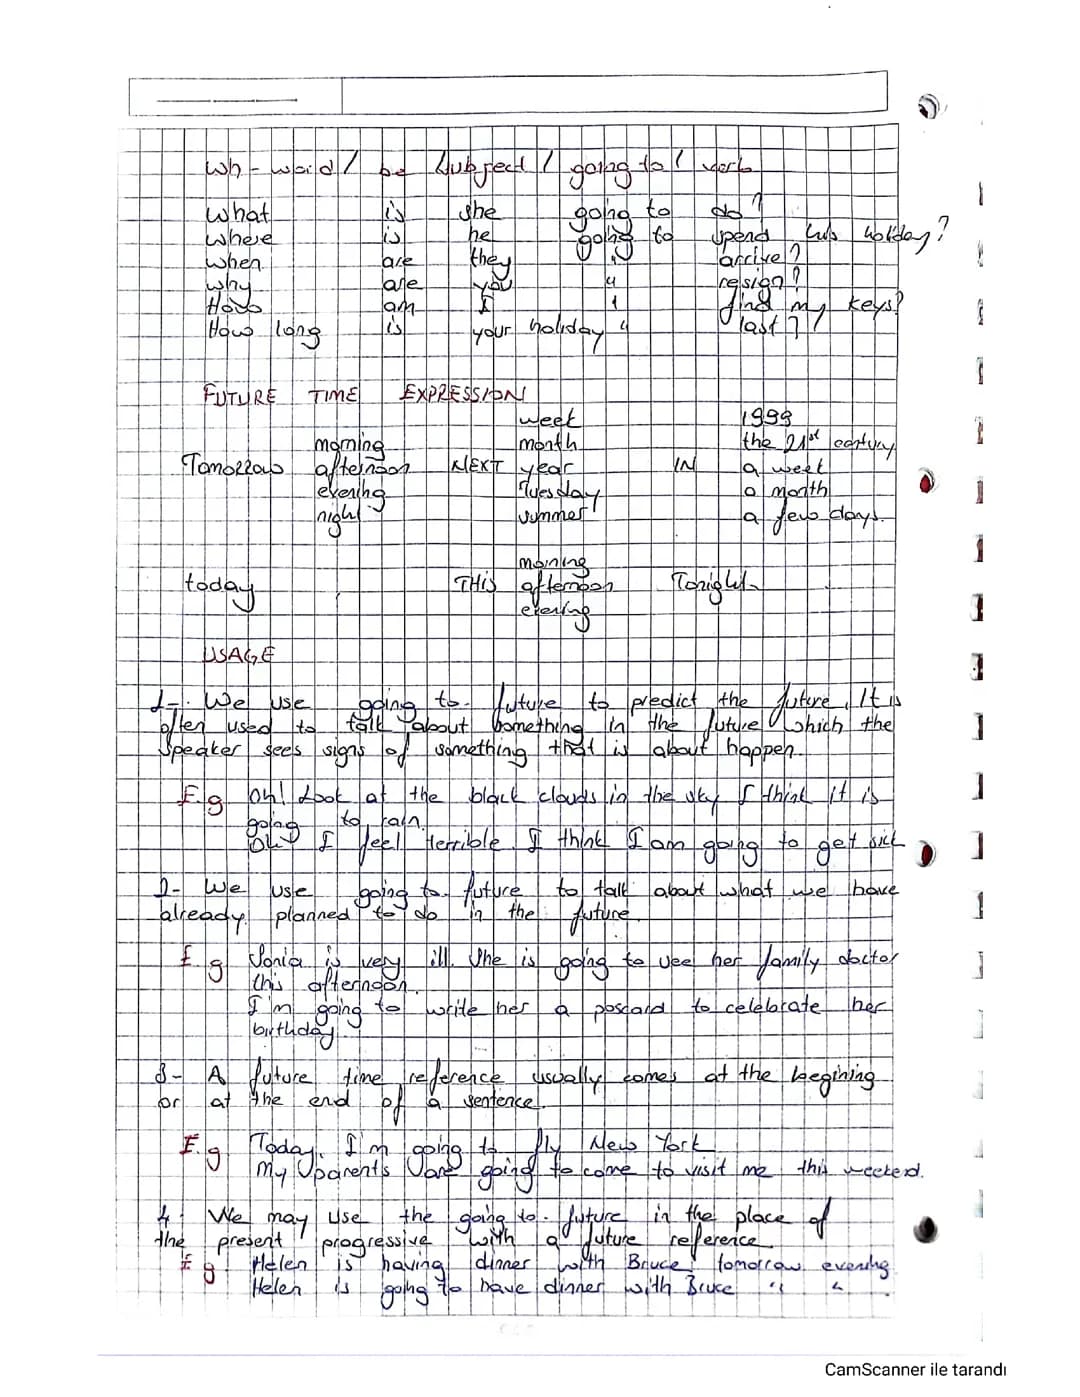 Wh - word / be Subject / going to / verb
what is she going to do?
where is he going to spend his holiday?
when are they " arrive?
why are you " resign?
How am I " find my keys?
How long is your holiday " last?
FUTURE TIME EXPRESSION
week 1999
morning month the 21st century
Tomorrow afternoon NEXT year IN a week
evening Tuesday a month
night summer a few days.
morning
today THIS afternoon Tonight
evening
USAGE
1-. We use going to- future to predict the future. It is
often used to talk about something in the future which the
speaker sees signs of something that is about happen.
E.g Oh! Look at the black clouds in the sky I think it is
going to rain.
Oh I feel terrible. I think I am going to get sick
2- We use going to- future to talk about what we have
already planned to do in the future.
E.g Sonia is very ill. She is going to see her family doctor
this afternoon.
I'm going to write her a poscard to celebrate her
birthday.
3- A future time reference usually comes at the begining
or at the end of a sentence.
E.g Today, I'm going to fly New York
My parents are going to come to visit me this weekend.
4- We may use the going to- future in the place of
the present progressive with a future reference
E.g Helen is having dinner with Bruce tomorrow evening
Helen is going to have dinner with Bruce " "
CamScanner ile tarandı